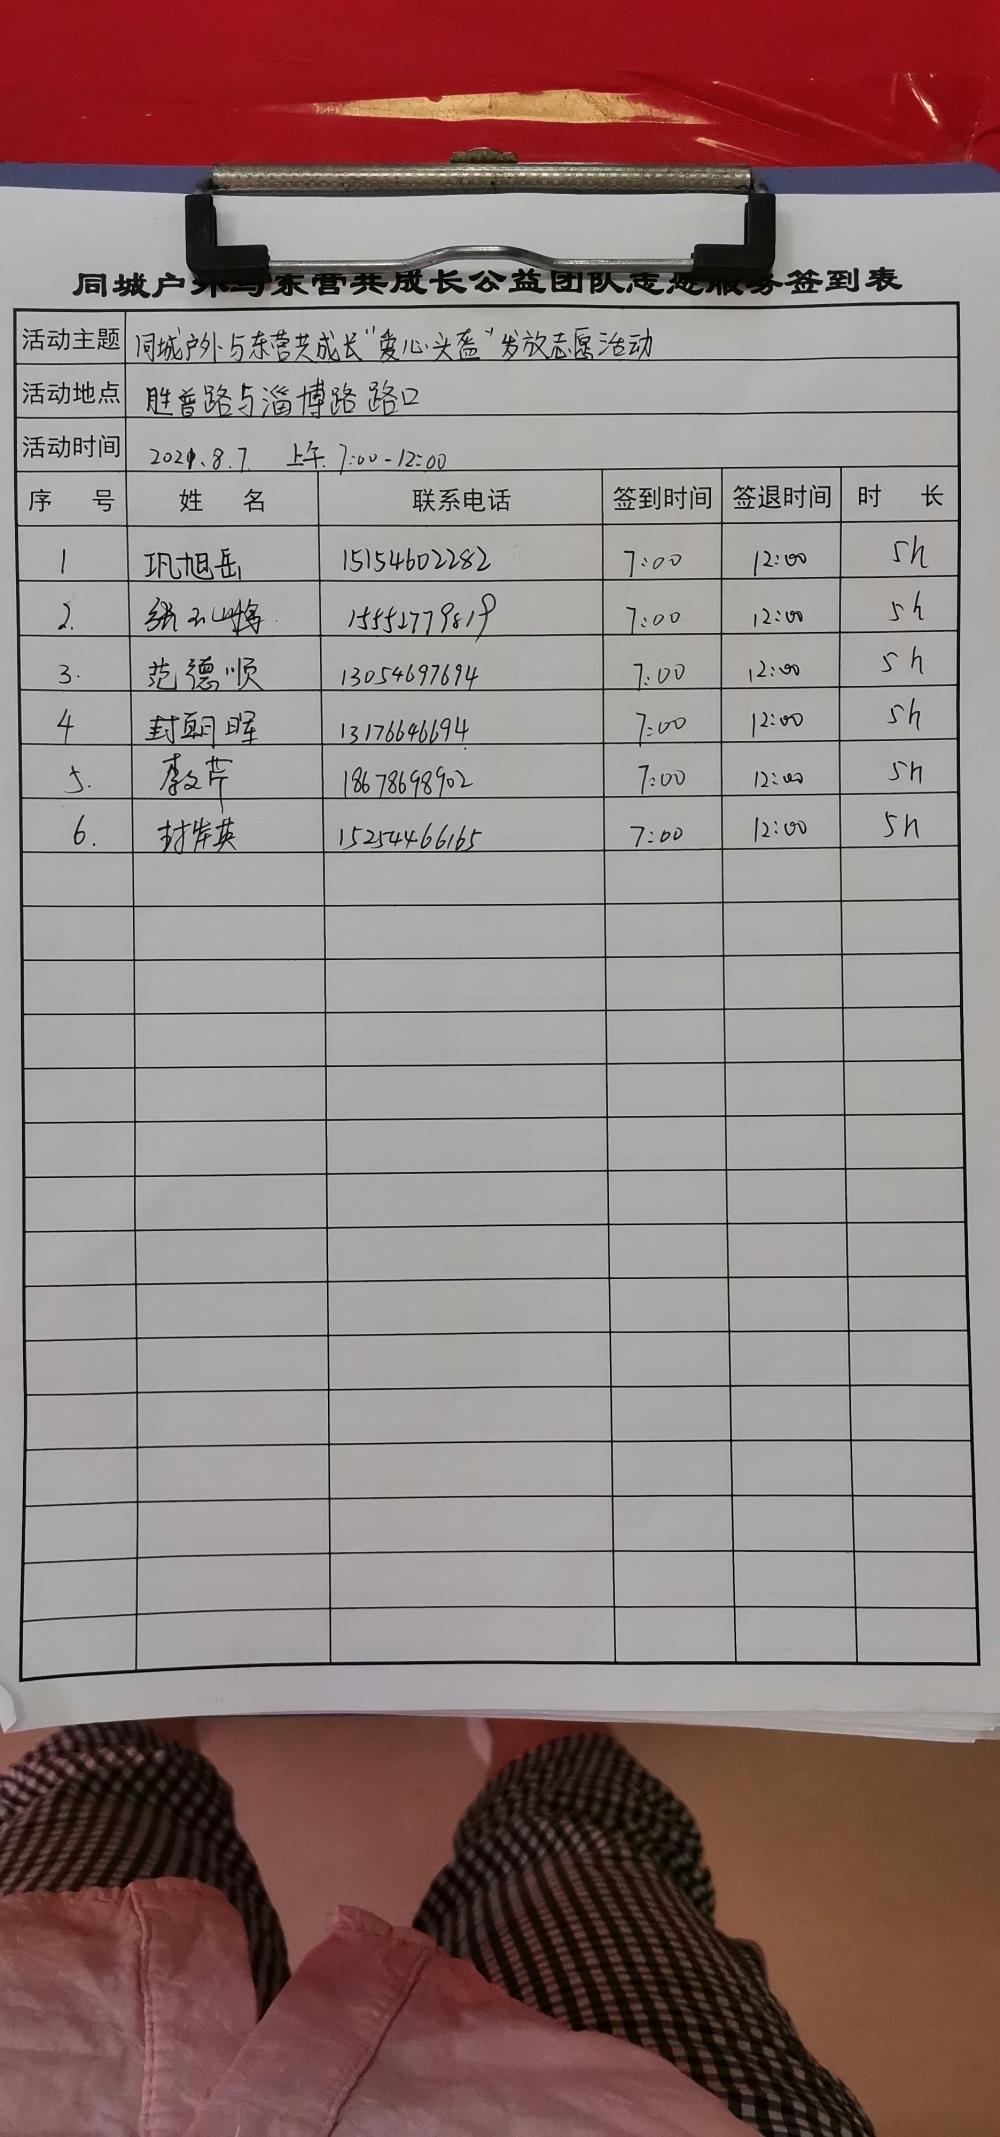 同城户外与东营共成长公益团队志愿服务签到表
活动主题 同城户外与东营共成长“爱心头盔”发放志愿活动
活动地点 胜普路与淄博路路口
活动时间 2021.8.7. 上午.7:00-12:00
序 号 姓 名 联系电话 签到时间 签退时间 时 长
1 巩旭岳 15154602282 7:00 12:00 5h
2. 15552779819 7:00 12:00 5h
3. 范德顺 13054697694 7:00 12:00 5h
4 封朝晖 13176646694 7:00 12:00 5h
5. 李文芹 18678698902 7:00 12:00 5h
6. 封 英 15254466165 7:00 12:00 5h